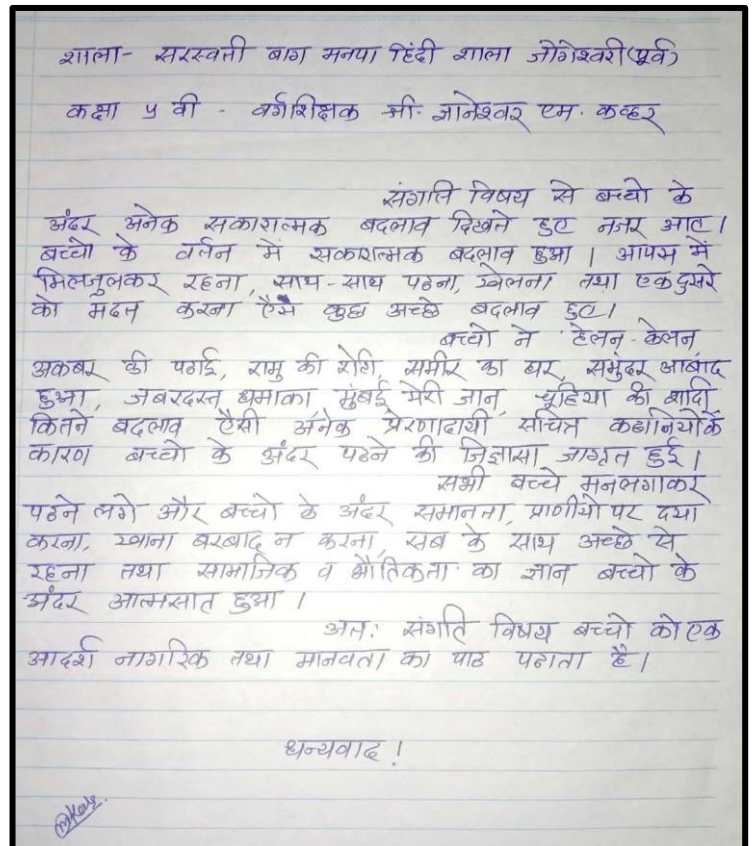 शाला- सरस्वती बाग मनपा हिंदी शाला जोगेश्वरी(पूर्व)
कक्षा ५ वी - वर्गशिक्षक श्री. ज्ञानेश्वर एम. कव्हर
संगति विषय से बच्चो के
अंदर अनेक सकारात्मक बदलाव दिखते हुए नजर आए।
बच्चो के वर्तन में सकारात्मक बदलाव हुआ। आपस में
मिलजुलकर रहना, साथ-साथ पढना, खेलना तथा एकदुसरे
को मदत करना ऐसे कुछ अच्छे बदलाव हुए।
बच्चो ने हेलन-केलन
अकबर की पढाई, रामु की रोटी, समीर का घर, समुंदर आबाद
हुआ, जबरदस्त धमाका, मुंबई मेरी जान, चूहिया की शादी
कितने बदलाव ऐसी अनेक प्रेरणादायी सचित्र कहानियोंके
कारण बच्चो के अंदर पढने की जिज्ञासा जागृत हुई।
सभी बच्चे मनलगाकर
पढने लगे और बच्चो के अंदर समानता, प्राणीयो पर दया
करना, खाना बरबाद न करना, सब के साथ अच्छे से
रहना तथा सामाजिक व भौतिकता का ज्ञान बच्चो के
अंदर आत्मसात हुआ।
अतः संगति विषय बच्चो को एक
आदर्श नागरिक तथा मानवता का पाठ पढाता है।
धन्यवाद!